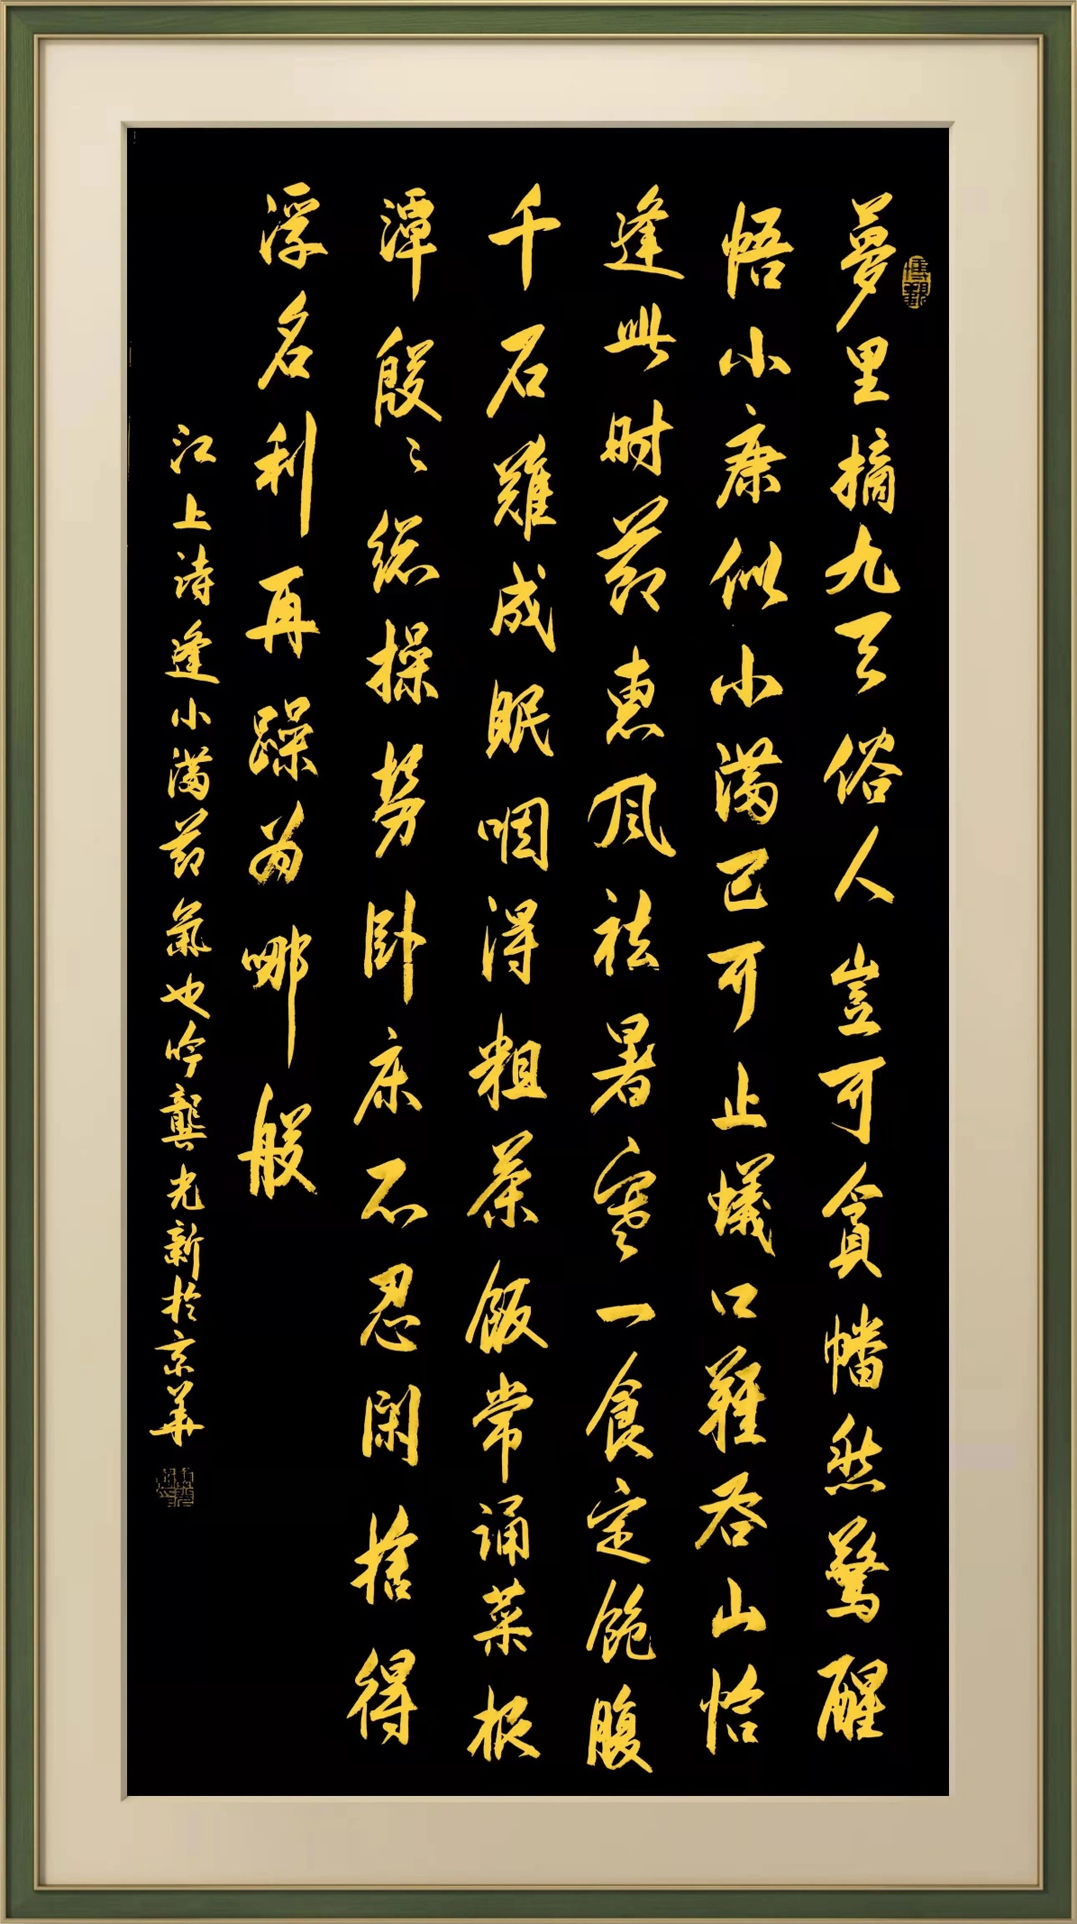 夢里摘九天俗人豈可貪幡然驚醒
悟小康似小滿已可止蟻口難吞山恰
逢此时節惠風祛暑寒一食定飽腹
千石難成眠咽得粗茶飯常诵菜根
潭殷〻総操勞卧床不忍閑捨得
浮名利再躁为哪般
江上诗逢小滿節氣也吟龔光新於京華